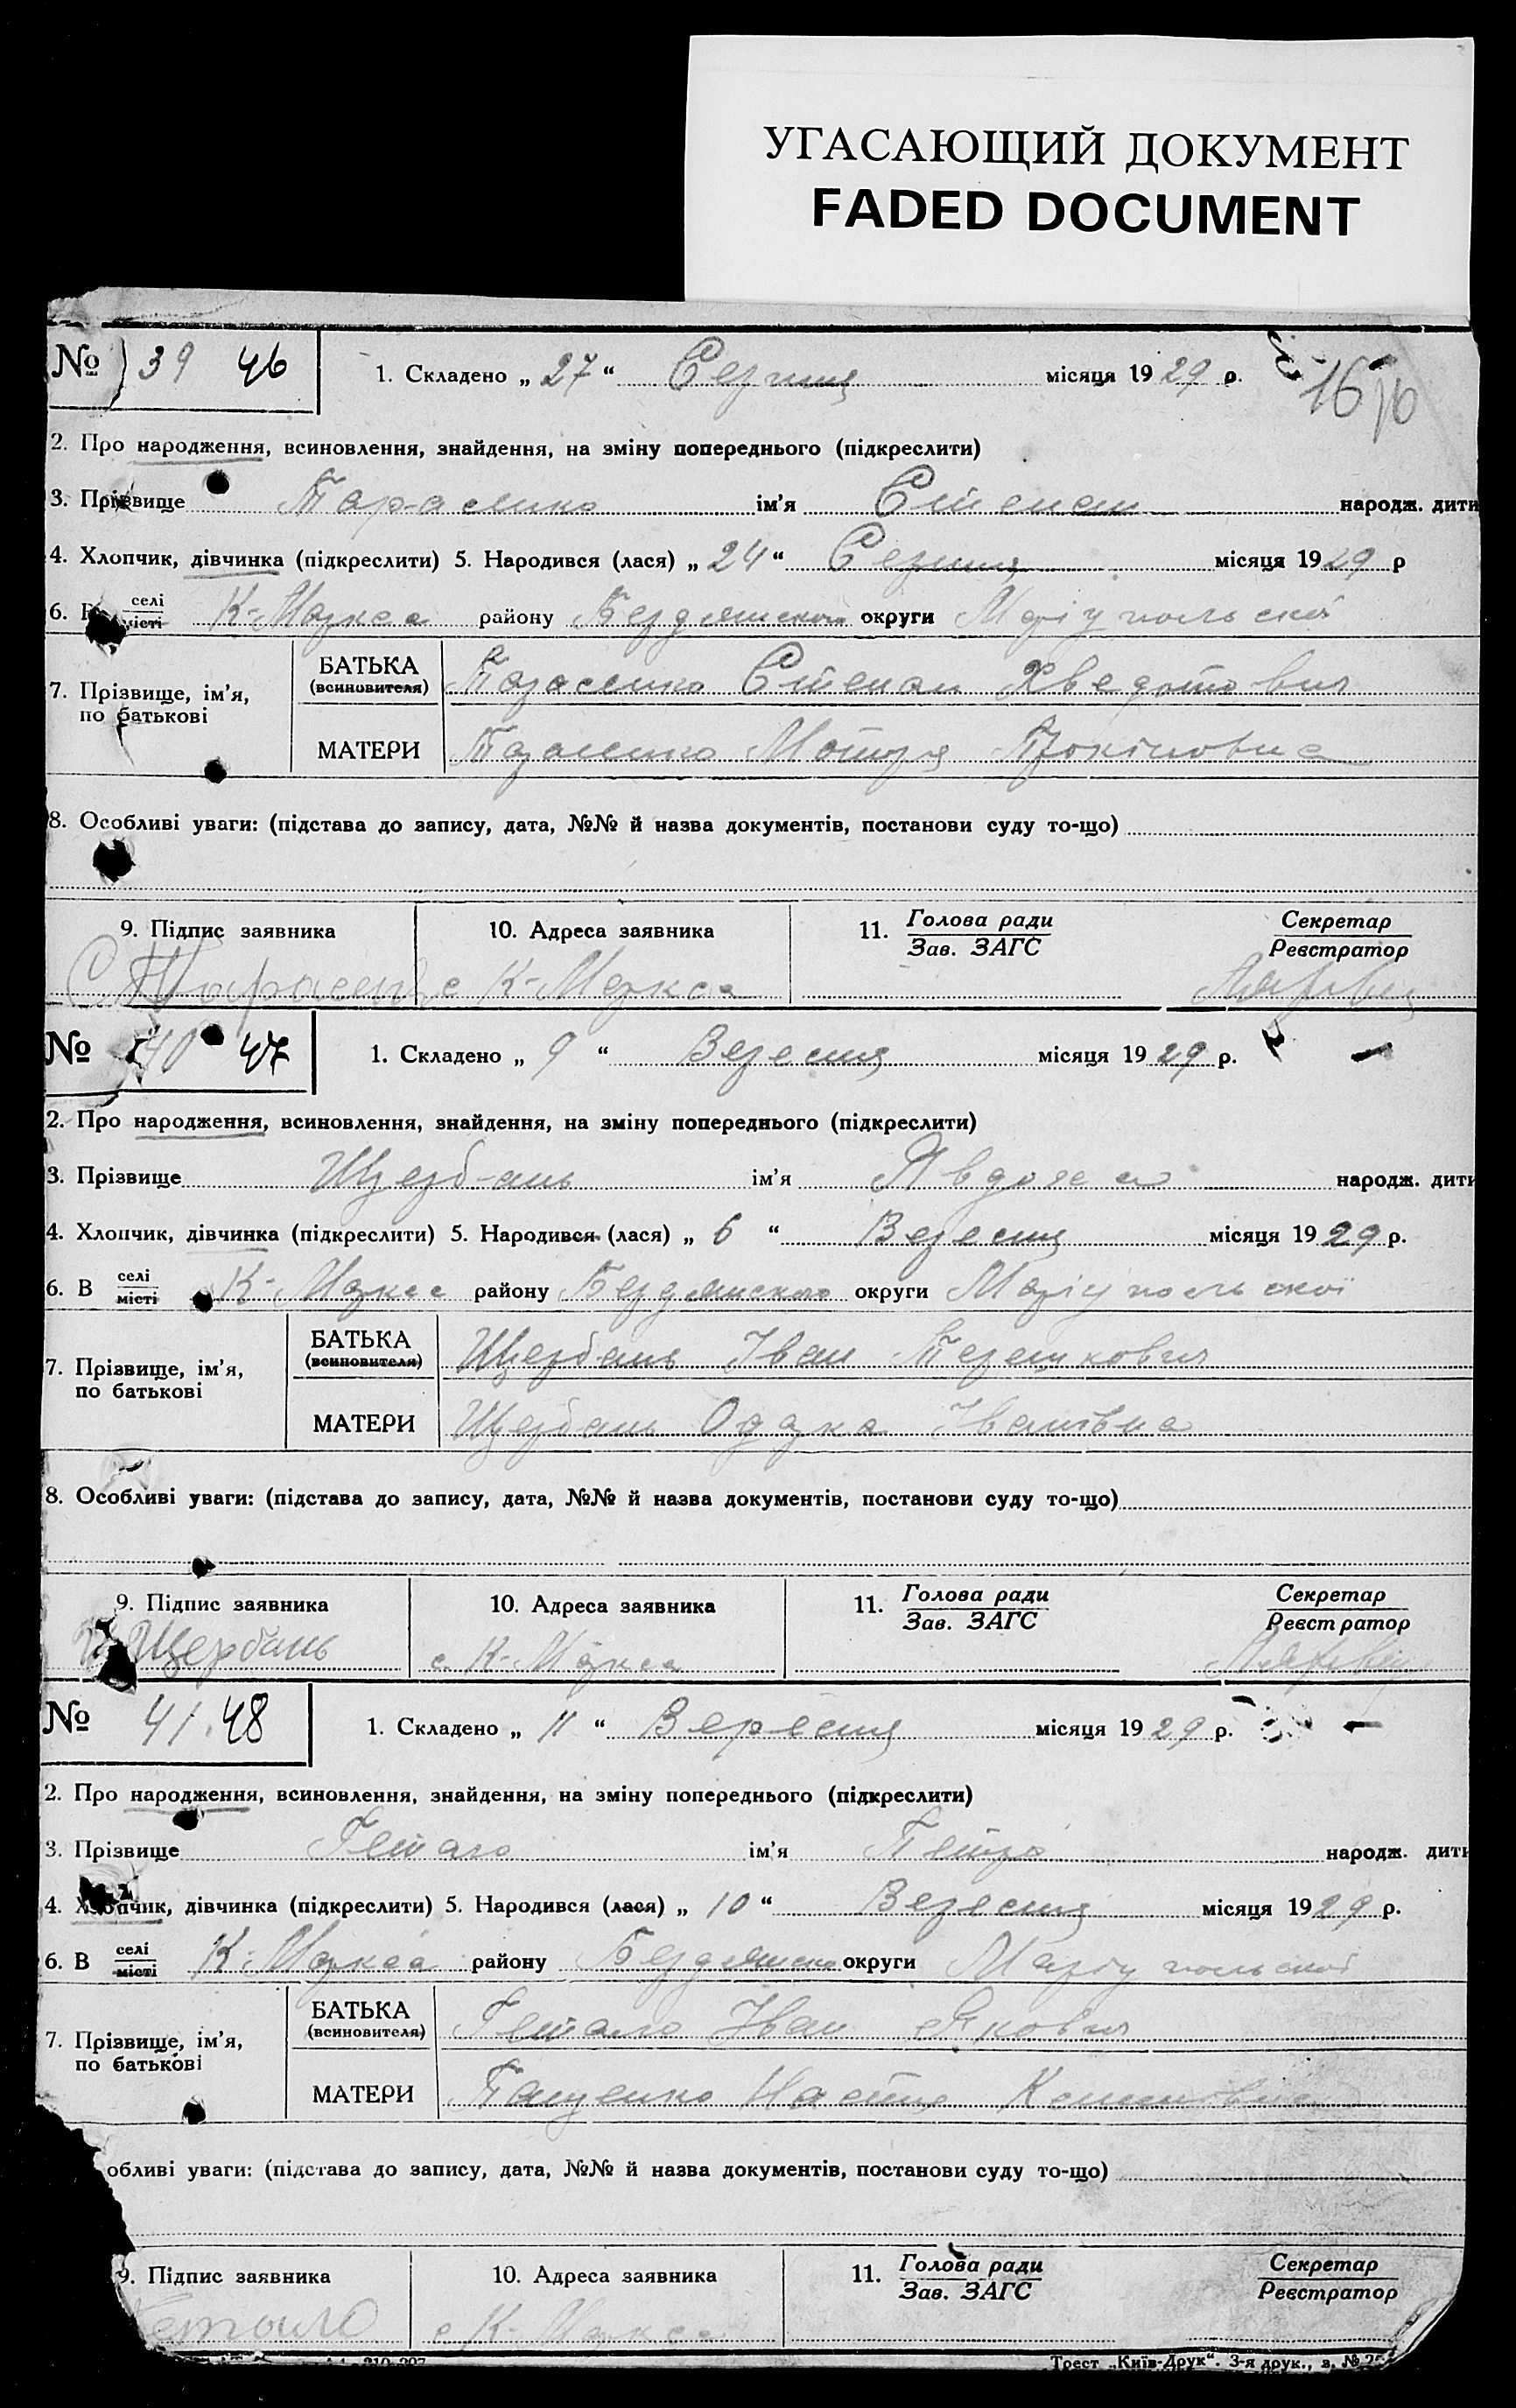 УГАСАЮЩИЙ ДОКУМЕНТ
FADED DOCUMENT
№ 39 46 1. Складено „ 27 “ Серпня місяця 1929 р.
2. Про народження, всиновлення, знайдення, на зміну попереднього (підкреслити)
3. Прізвище Тарасенко ім'я Степан народж. дити
4. Хлопчик, дівчинка (підкреслити) 5. Народився (лася) „ 24 “ Серпня місяця 1929 р
6. В селі місті К-Маркса району Бердянского округи Маріупольскої
7. Прізвище, ім'я, по батькові БАТЬКА (всиновителя) Тарасенко Степан Хведотович
МАТЕРИ Тарасенко Мотря
8. Особливі уваги: (підстава до запису, дата, №№ й назва документів, постанови суду то-що)
9. Підпис заявника 10. Адреса заявника 11. Голова ради Зав. ЗАГС Секретар Реєстратор
С Тарасенко с К-Маркса
№ 40 47 1. Складено „ 9 “ Вересня місяця 1929 р.
2. Про народження, всиновлення, знайдення, на зміну попереднього (підкреслити)
3. Прізвище Щербань ім'я народж. дити
4. Хлопчик, дівчинка (підкреслити) 5. Народився (лася) „ 6 “ Вересня місяця 1929 р.
6. В селі місті К-Маркса району Бердянского округи Маріупольскої
7. Прізвище, ім'я, по батькові БАТЬКА (всиновителя) Щербань Іван Терешкович
МАТЕРИ Щербань Одарка Іванівна
8. Особливі уваги: (підстава до запису, дата, №№ й назва документів, постанови суду то-що)
9. Підпис заявника 10. Адреса заявника 11. Голова ради Зав. ЗАГС Секретар Реєстратор
Щербань с. К-Маркса
№ 41 48 1. Складено „ 11 “ Вересня місяця 1929 р.
2. Про народження, всиновлення, знайдення, на зміну попереднього (підкреслити)
3. Прізвище Гетало ім'я Петро народж. дити
4. Хлопчик, дівчинка (підкреслити) 5. Народився (лася) „ 10 “ Вересня місяця 1929 р.
6. В селі місті К-Маркса району Бердянско округи Маріупольскої
7. Прізвище, ім'я, по батькові БАТЬКА (всиновителя) Гетало Іван Якович
МАТЕРИ Настя
обливі уваги: (підстава до запису, дата, №№ й назва документів, постанови суду то-що)
9. Підпис заявника 10. Адреса заявника 11. Голова ради Зав. ЗАГС Секретар Реєстратор
Гетало с К-Маркса
Трест „Київ-Друк“. 3-я друк., з. №